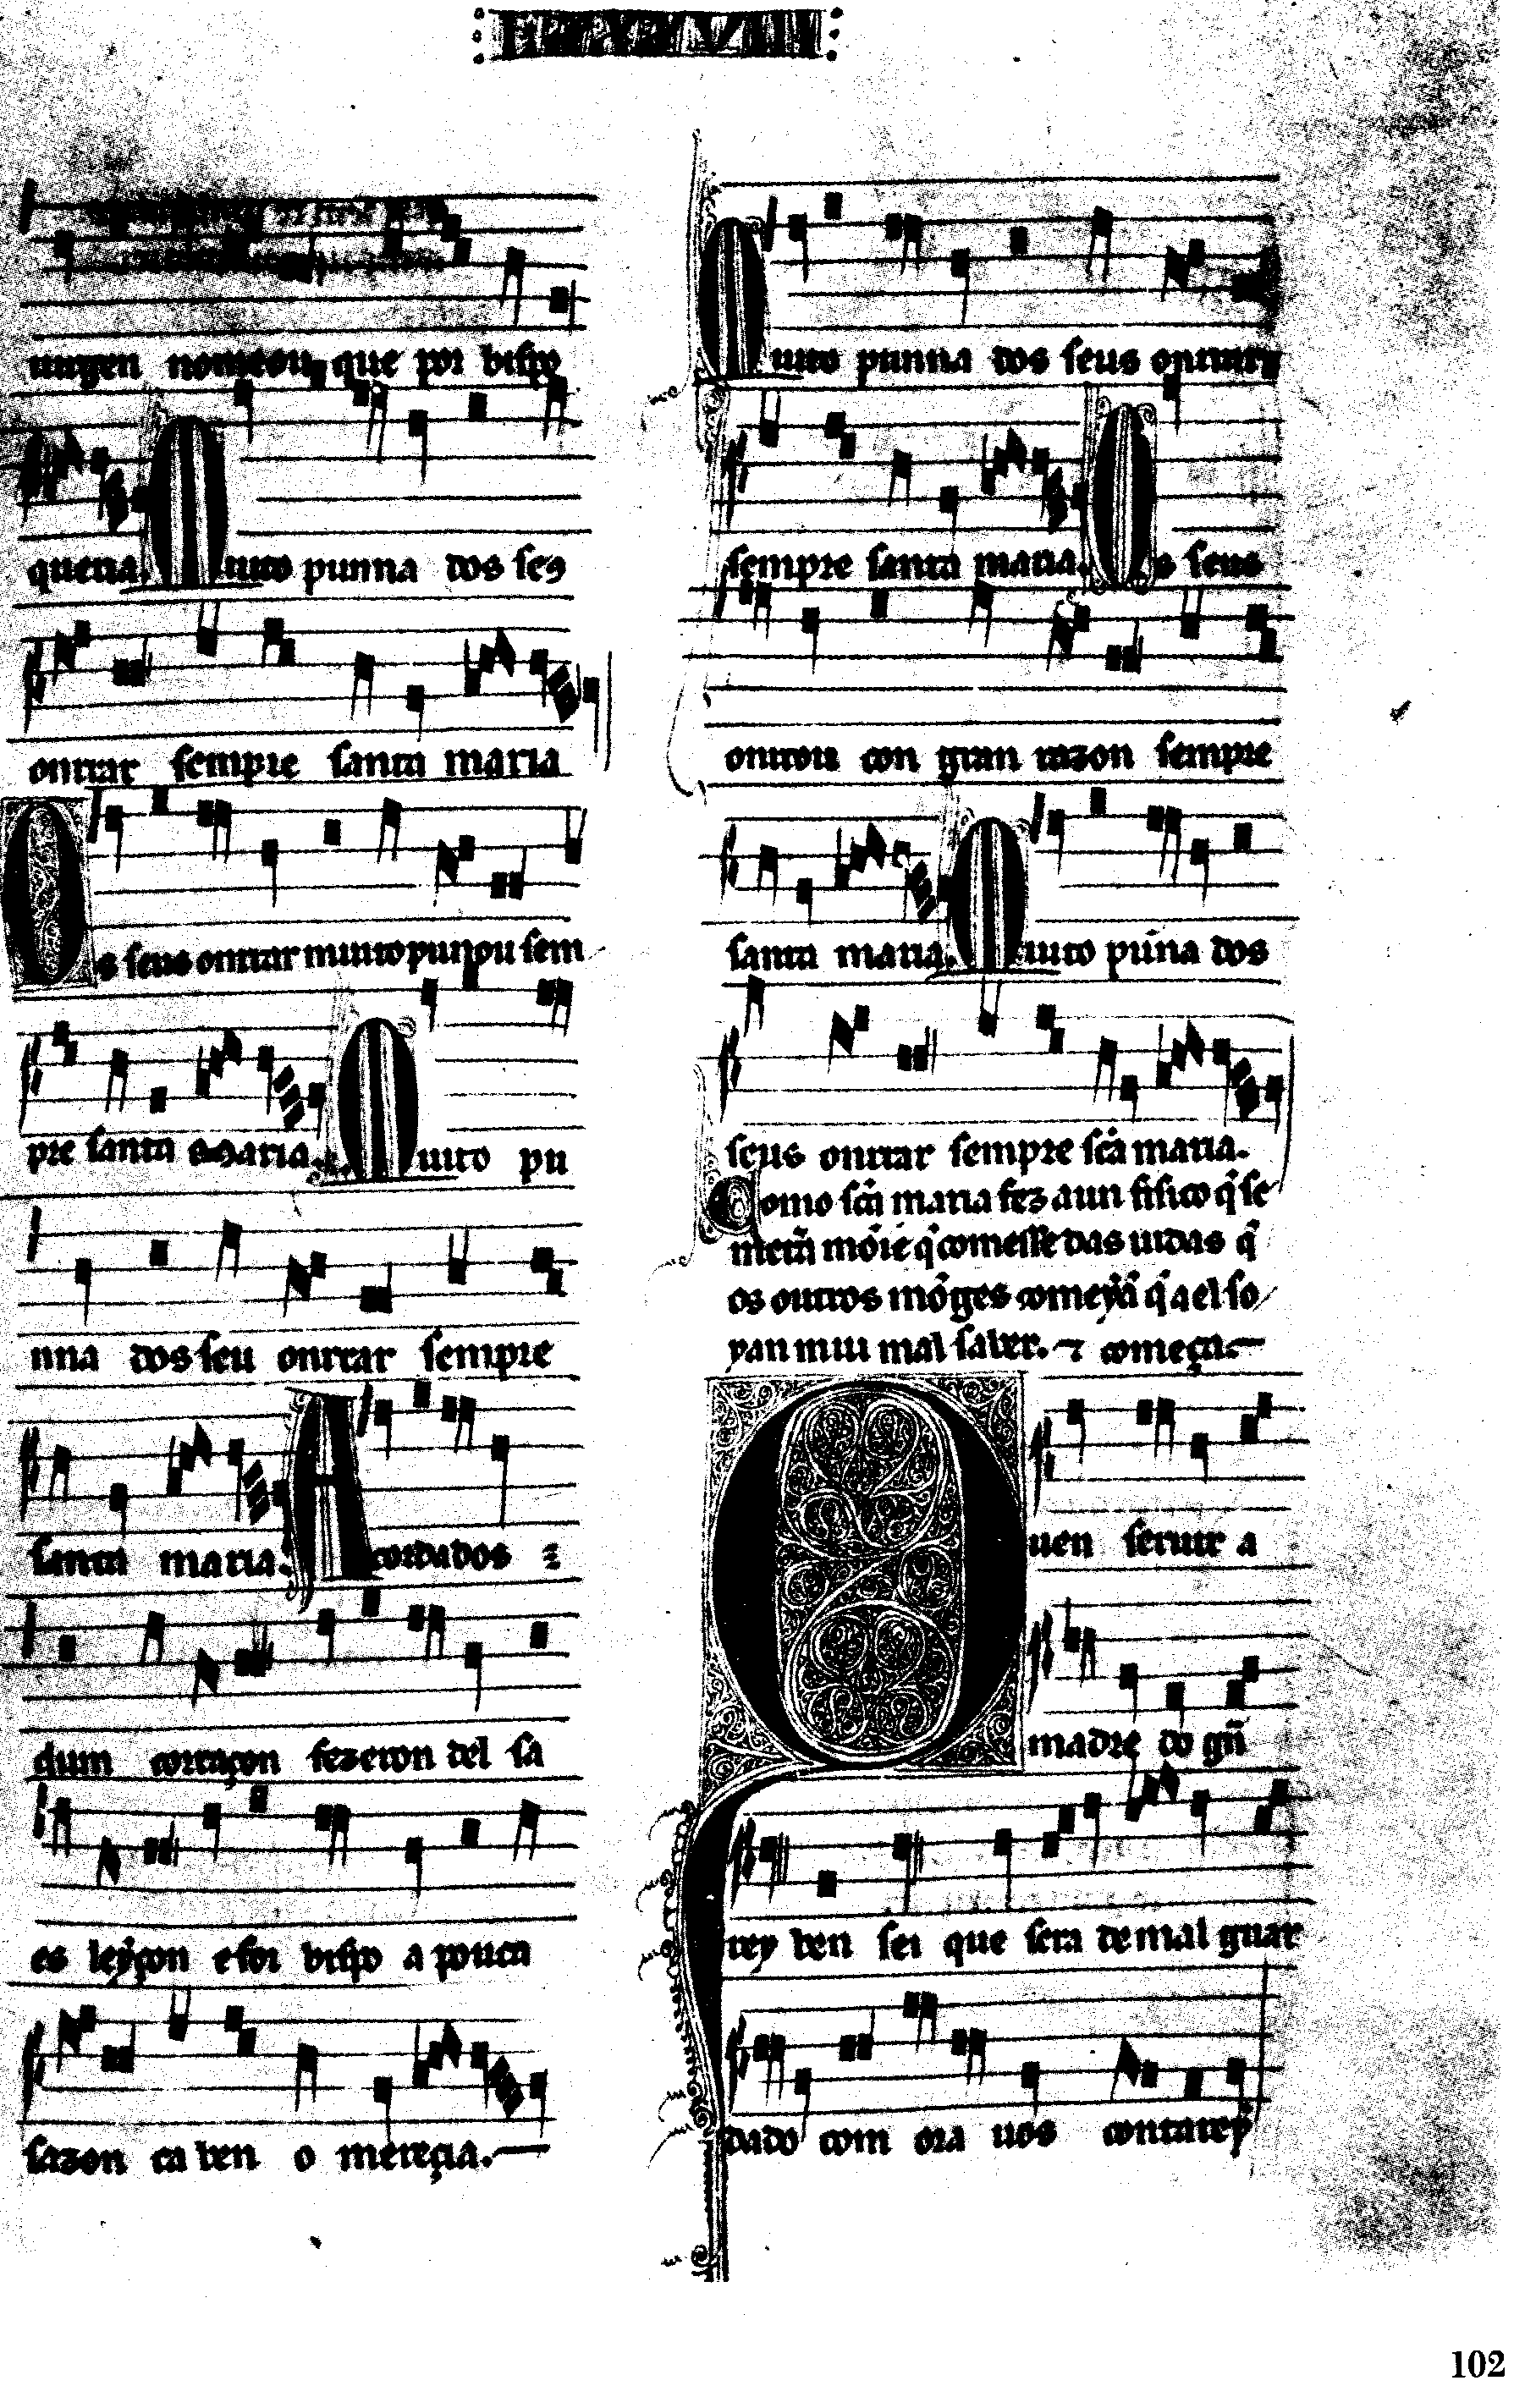 LXXXVIII
uirgen nomeou que por bispo
queria. Muito punna dos seꝯ
onrrar sempre santa maria
Os seus onrrar muito punou sem
pre santa Maria. Muito pu
nna dos seu onrrar sempre
santa maria. Acordados
dum coraçon fezeron del sa
es leyçon e foi bispo a pouca
sazon ca ben o mereçia.
Muito punna dos seus onrrar
sempre santa maria. Os seus
onrrou con gran razon sempre
santa maria. Muito pũna dos
seus onrrar sempre sc̃a maria.
Como sc̃a maria fez a un fisico q̃ se
metera mõie q̃ comesse das uidas q̃
os outros mõges comeyã q̃ a el so
yan mui mal saber. ⁊ começa.
Quen seruir a
madre do gñ
rey ben sei que sera de mal guar
dado com ora uos contarey
102